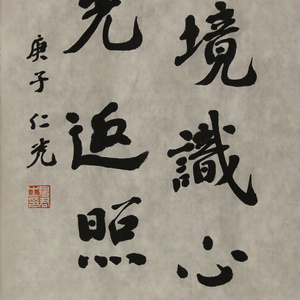 境識心
光返照
庚子 仁光